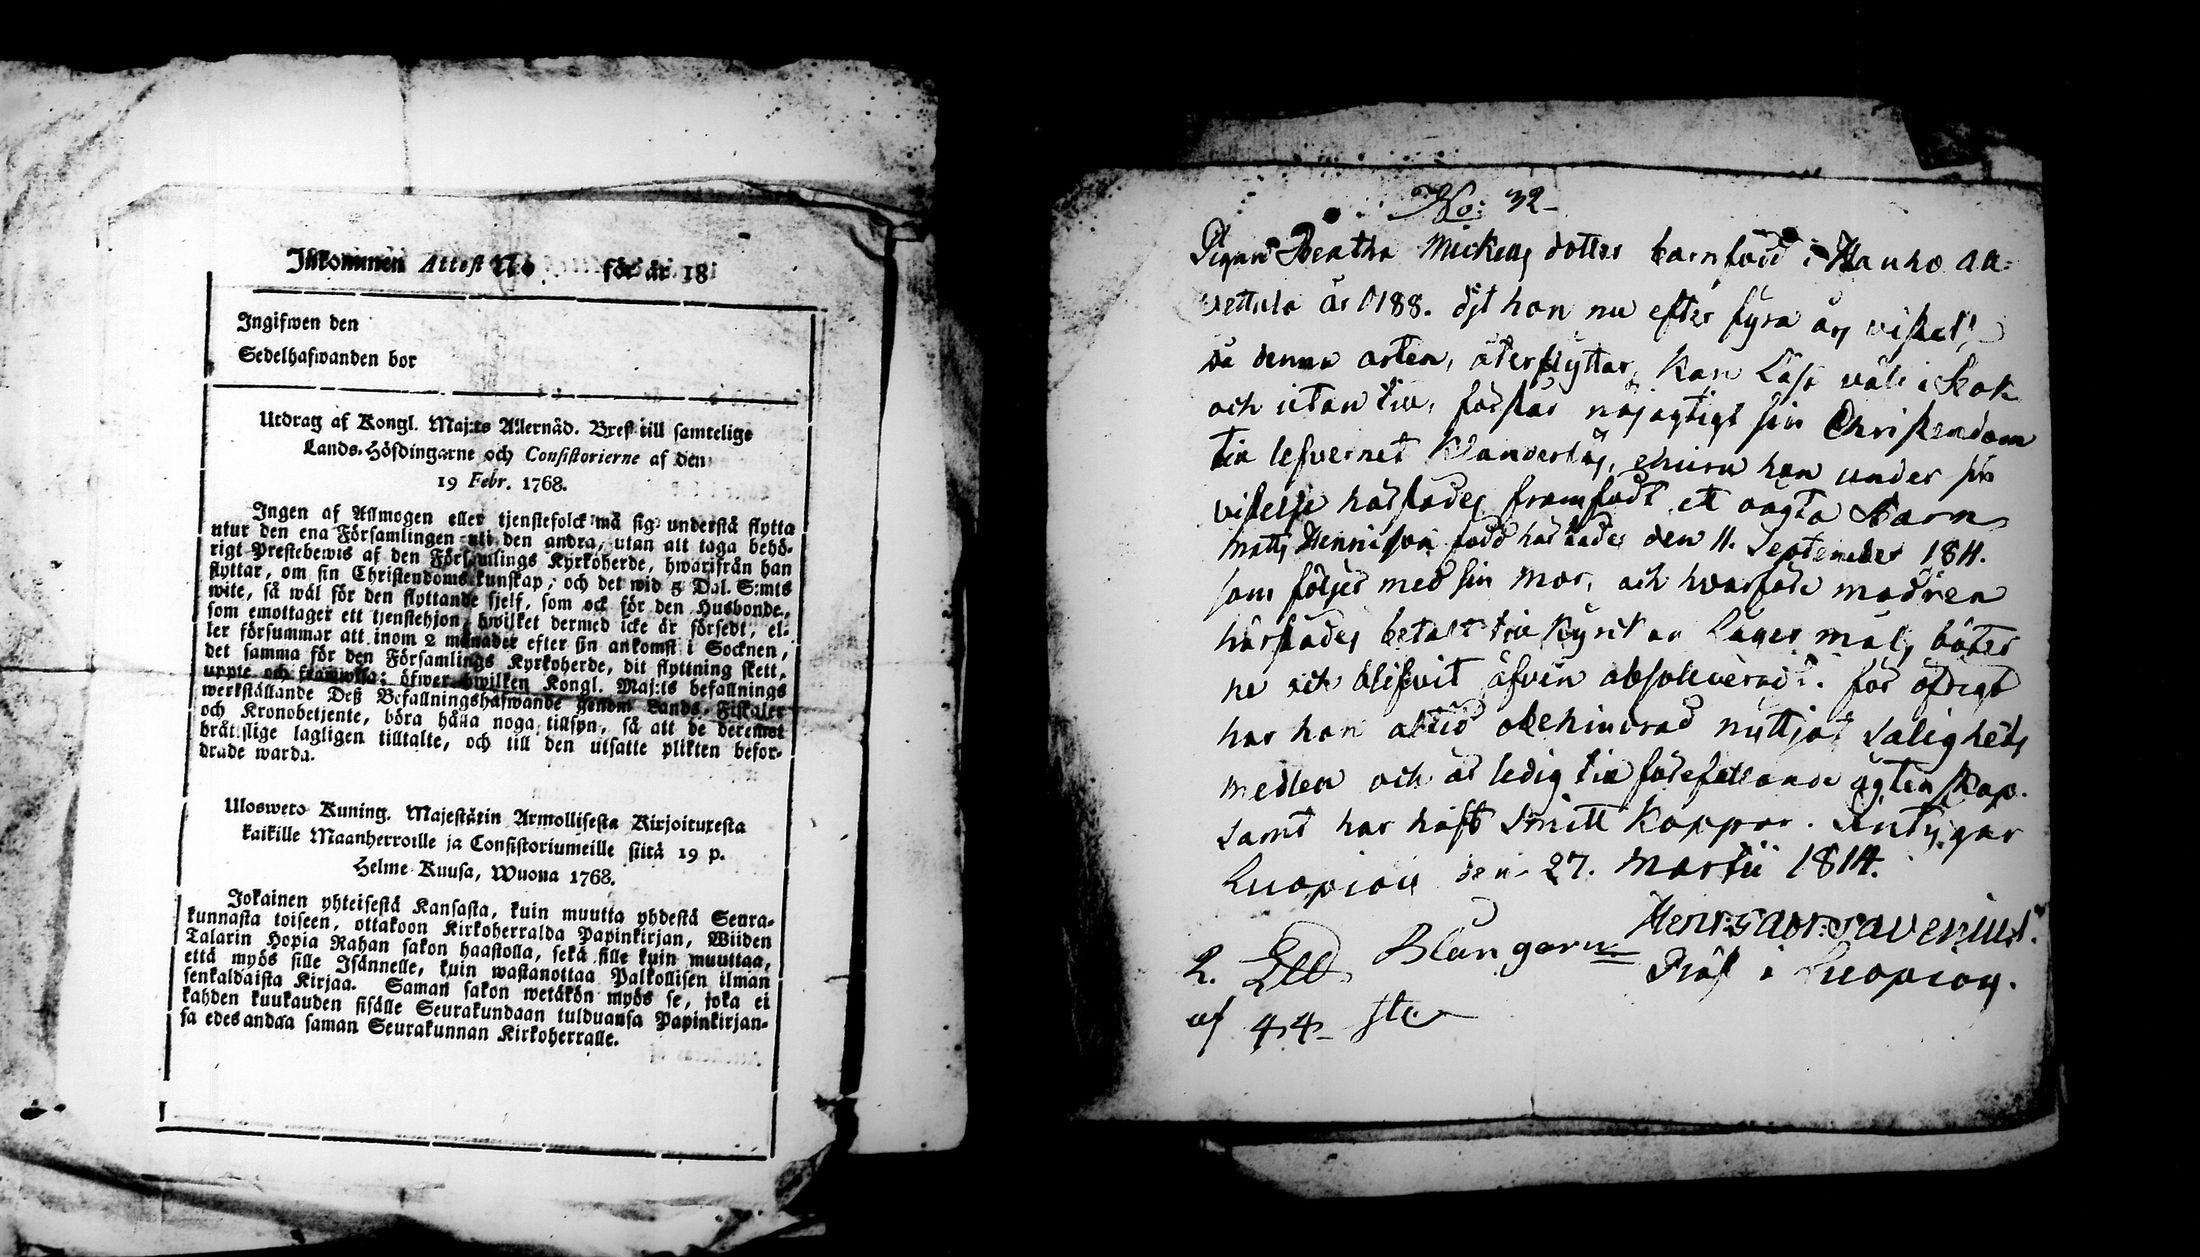 Inkommen Attest No för år 18
Ingifwen den
Sedelhafwanden bor
Utdrag af Kongl. Maj:ts Allernåd. Bref till samtelige
Lands-Höfdingarne och Consistorierne af den
19 Febr. 1768.
Ingen af Allmogen eller tjenstefolck må sig understå flytta
utur den ena Församlingen uti den andra, utan att taga behö-
rigt Prestebewis af den Församlings Kyrkoherde, hwarifrån han
flyttar, om sin Christendoms kunskap, och det wid 5 Dal. S:mts
wite, så wäl för den flyttande sjelf, som ock för den Husbonde,
som emottager ett tjenstehjon, hwilket dermed icke är försedt, el-
ler försummar att inom 2 månader efter sin ankomst i Socknen,
det samma för den Församlings Kyrkoherde, dit flyttning skett,
uppte och framwisa; öfwer hwilken Kongl. Maj:ts befallnings
werkställande Deß Befallningshafwande genom Lands-Fiskaler
och Kronobetjente, böra hålla noga tillsyn, så att de deremot
bråttslige lagligen tilltalte, och till den utsatte plikten befor-
drade warda.
Ulosweto Kuning. Majestätin Armollisesta Kirjoituxesta
kaikille Maanherroille ja Consistoriumeille siitä 19 p.
Helme Kuusa, Wuona 1768.
Jokainen yhteisestä Kansasta, kuin muutta yhdestä Seura-
kunnasta toiseen, ottakoon Kirkoherralda Papinkirjan, Wiiden
Talarin Hopia Rahan sakon haastolla, sekä sille kuin muuttaa,
että myös sille Isännelle, kuin wastanottaa Palkollisen ilman
senkaldaista Kirjaa. Saman sakon wetäkön myös se, joka ei
kahden kuukauden sisälle Seurakundaan tulduansa Papinkirjan-
sa edesandaa saman Seurakunnan Kirkoherralle.
No: 32
Pigan Beatha Mickels dotter barnfödd i Hauho
Vettula år 1788. dit hon nu efter fyra års
denna orten, återflyttar, Kan Läsa väl i Bok
och utan till, förstår nöjagtigt sin Christendom
till lefvernet Klanderlös, ehuru hon under sin
vistelse härstädes framfödt et oägta Barn
Matts född härstädes den 11. September 1811.
som följer med sin mor, och hvarföre modren
härstädes betalt till Kyrkan Lägersmåls böter
ne och blifvit äfven absolverad. för öfrigt
har hon altid obehindrad nyttjat Salighets
medlen och är ledig till förefallande ägtenskap.
samt har haft Smitt Koppor. Intygar
Luopiois den 27. Martii 1814.
Henr: Gabr: Favenius.
i Luopiois.